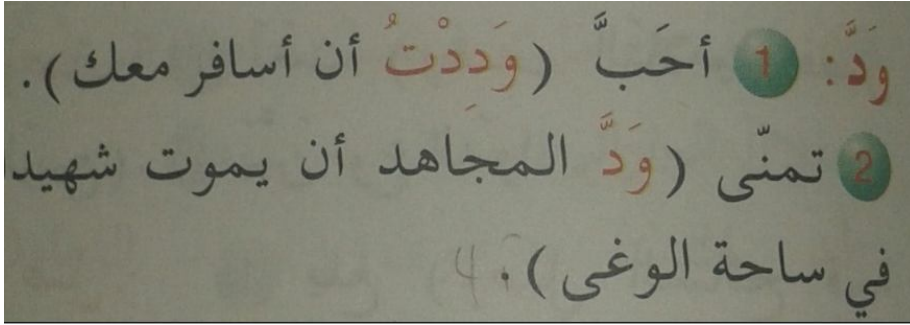 وَدَّ: 1 أحَبَّ (وَدِدْتُ أن أسافر معك).
2 تمنّى (وَدَّ المجاهد أن يموت شهيد
في ساحة الوغى).